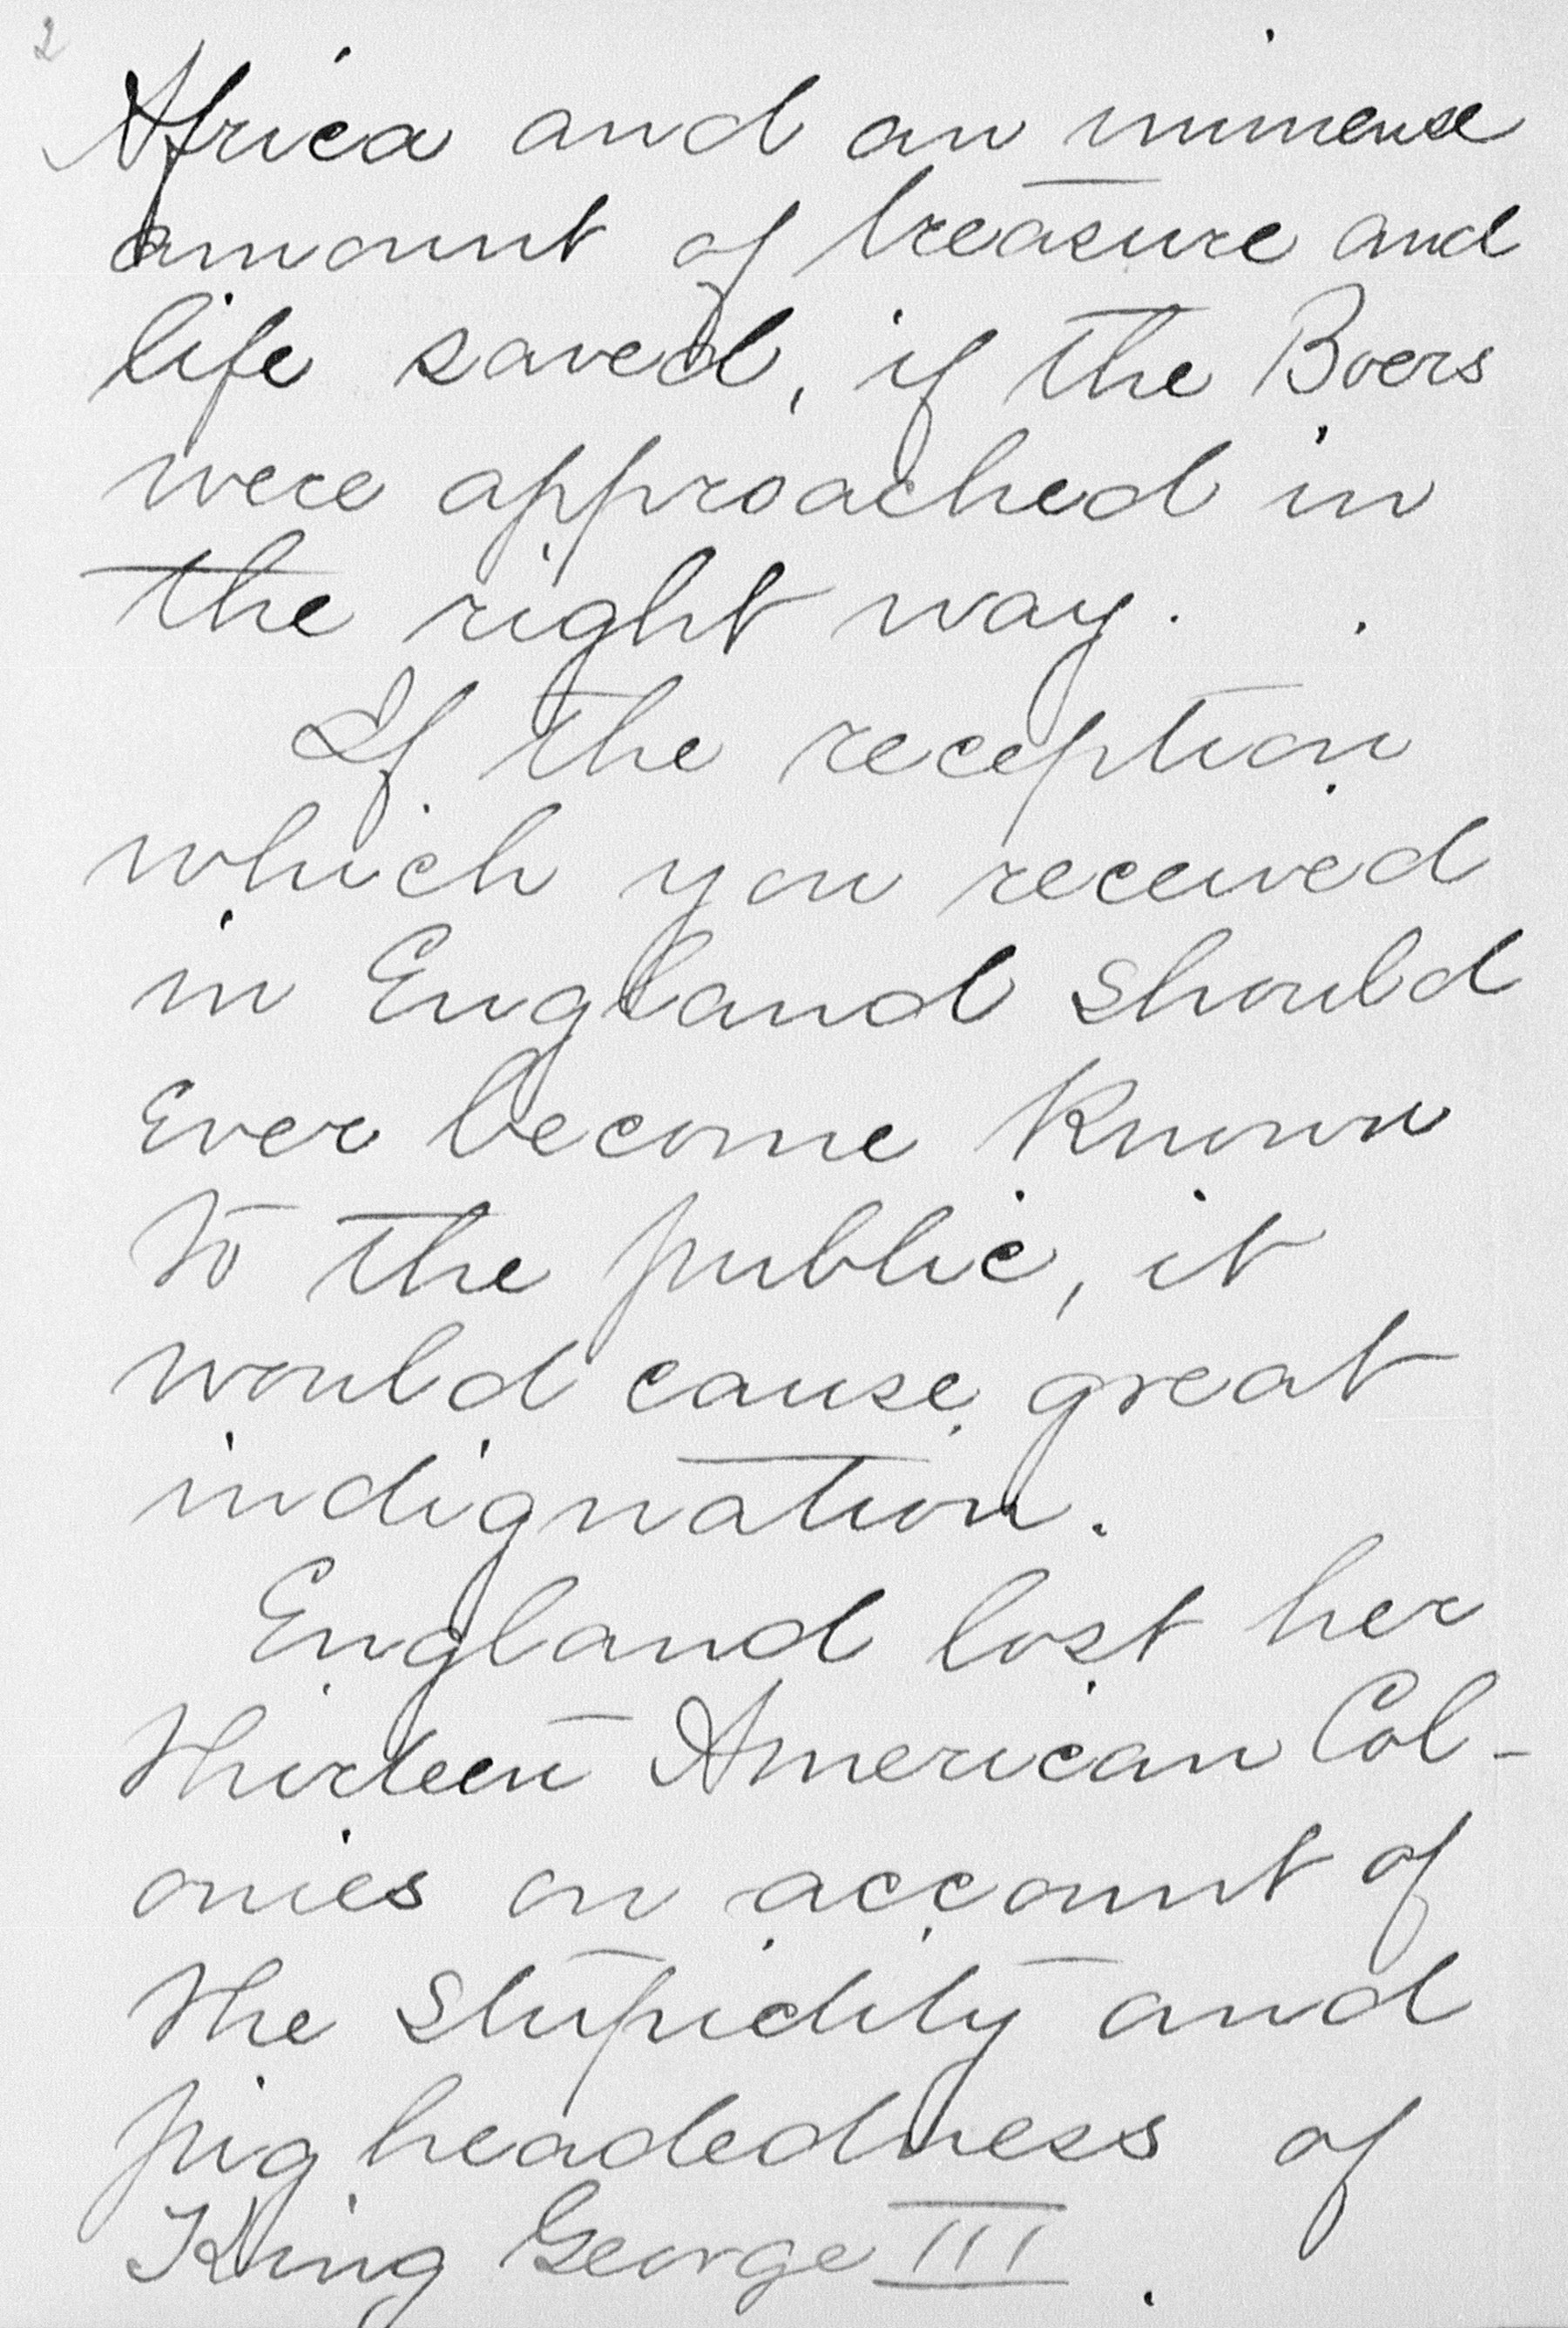 2
Africa and an immense
amount of treasure and
life saved, if the Boers
were approached in
the right way.
If the reception
which you received
in England should
ever become known
to the public, it
would cause great
indignation.
England lost her
Thirteen American Col-
onies on account of
the stupidity and
pigheadedness of
King George III.